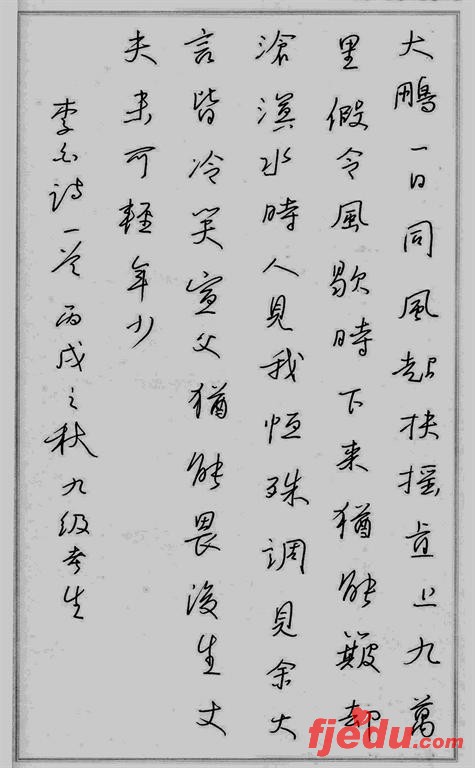 大鵬一日同風起扶搖直上九萬
里假令風歇時下来猶能簸却
滄溟水時人見我恒殊調見余大
言皆冷笑宣父猶能畏後生丈
夫未可輕年少
李白诗一首丙戌之秋九级考生
fjedu.com